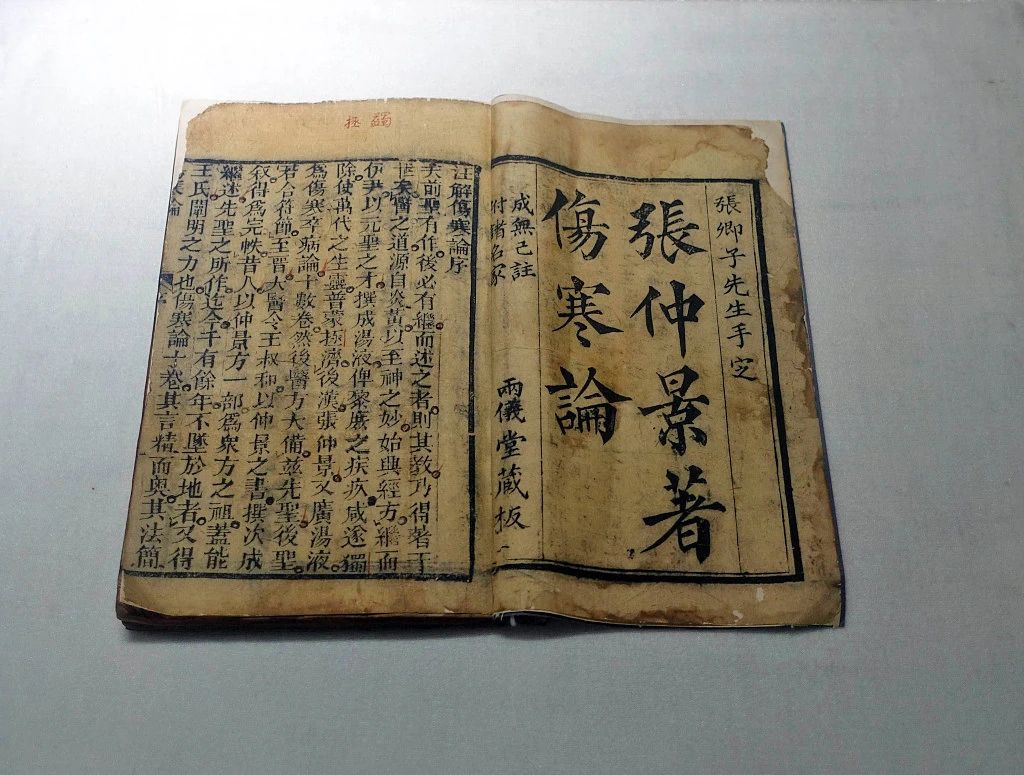 張卿子先生手定
張仲景著
傷寒論
成無己註
附諸名家
兩儀堂藏板
蠲 拯
註解傷寒論序
夫前聖有作後必有繼而述之者則其教乃得著于
世矣醫之道源自炎黃以至神之妙始興經方繼而
伊尹以元聖之才撰成湯液俾黎庶之疾疢咸遂蠲
除使萬代之生靈普蒙拯濟後漢張仲景又廣湯液
為傷寒卒病論十數卷然後醫方大備茲先聖後聖
若合符節至晉太醫令王叔和以仲景之書撰次成
叙得為完帙昔人以仲景方一部為衆方之祖蓋能
繼述先聖之所作迄今千有餘年不墜於地者又得
王氏闡明之力也傷寒論十卷其言精而奧其法簡